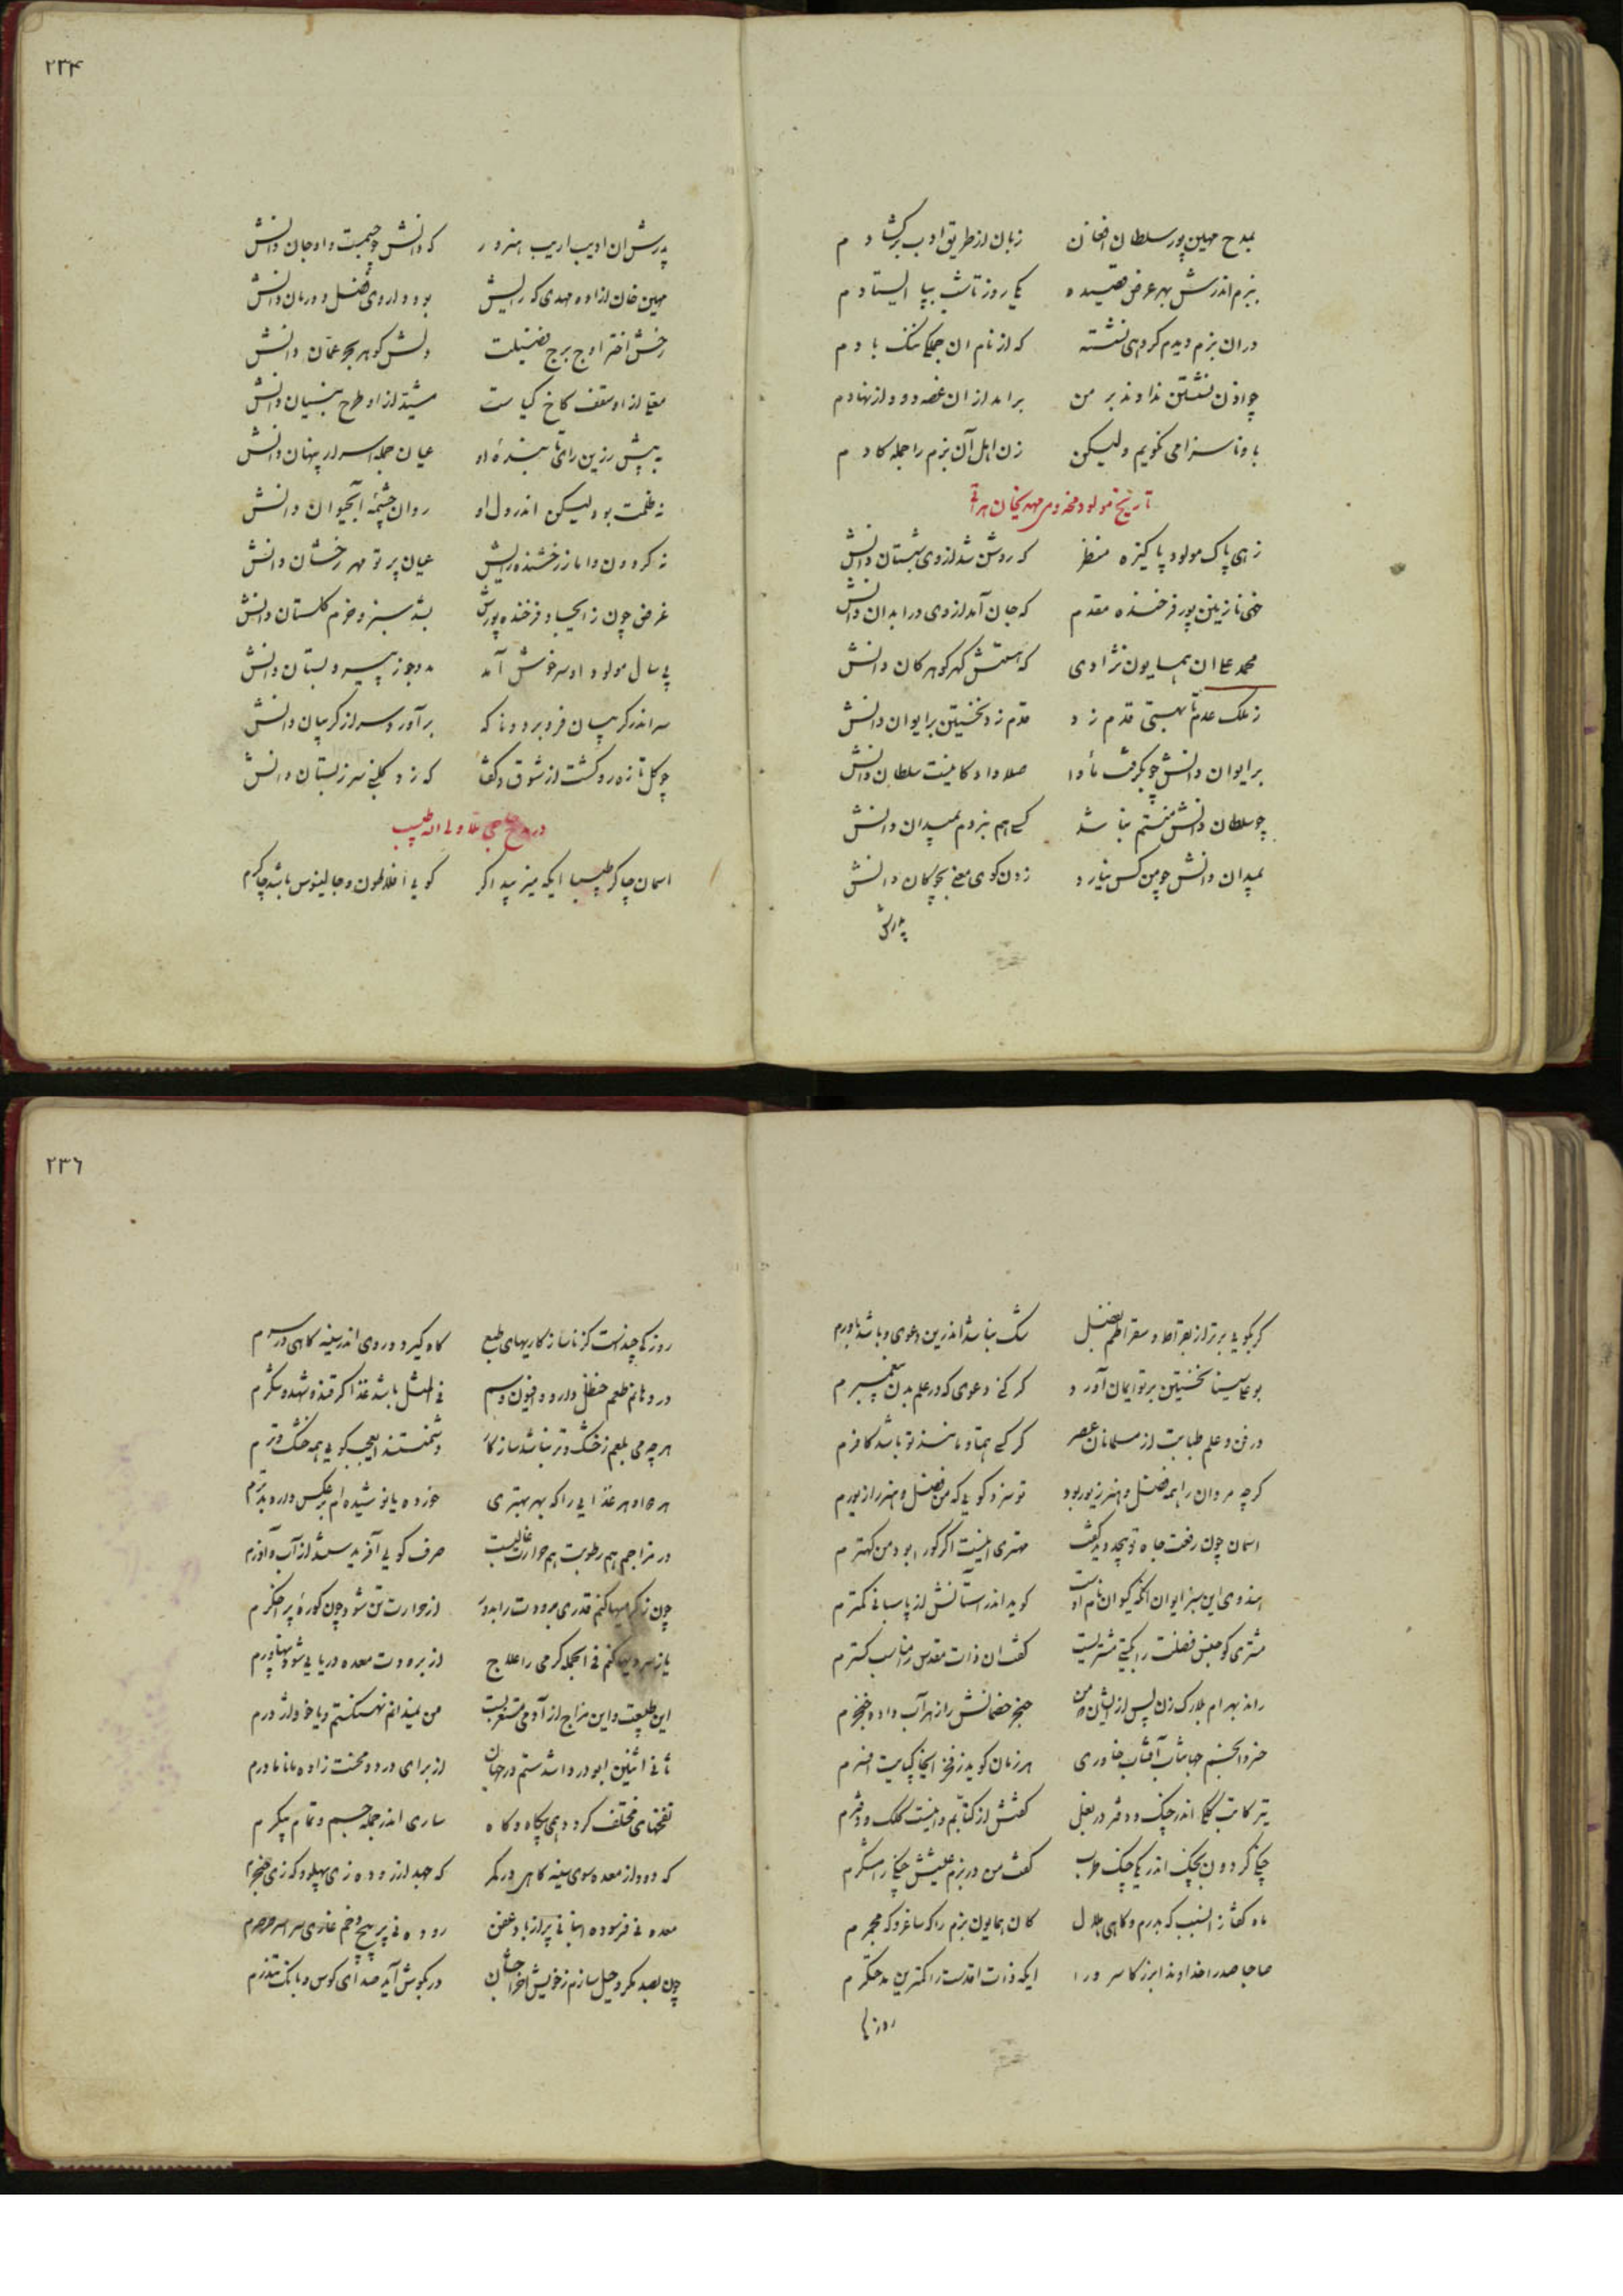 ۲۳۴
بمدح مهین پور سلطان افغان زبان از طریق ادب برگشادم
ببزم اندرش بهر عرض قصیده یکی روز تا شب بپا ایستادم
در آن بزم دیدم گروهی نشسته که از نام ان جملگی ننگ بادم
چو اذن نشستن ندادند بر من برامد از ان غصه دود از نهادم
باو ناسزا می نگویم ولیکن زن اهل آن بزم را جمله کادم
تاریخ مولود مخدومی مهدیخان هراتی
زهی پاک مولود پاکیزه منظر که روشن شد از وی شبستان دانش
خهی نازنین پور فرخنده مقدم که جان آمد از وی در ابدان دانش
محمد علی ان همایون نژادی که هستش گهر گوهر کان دانش
ز ملک عدم تا بهستی قدم زد قدم زد نخستین بر ایوان دانش
بر ایوان دانش چو بگرفت مأوا صلا داد کاینست سلطان دانش
چو سلطان دانش منستم نباشد کسی هم نبردم بمیدان دانش
بمیدان دانش چو من کس نیارد زدن گوی معنی بچوگان دانش
پدرش
پدرش ان ادیب اریب هنرور که دانش چو جسمست و او جان دانش
مهین خان ازاده مهدی که رایش بود داروی فضل و درمان دانش
رخش اختر اوج برج فضیلت دلش گوهر بحر عمان دانش
معلی از او سقف کاخ کیاست مشید از او طرح بنیان دانش
به پیش رزین رای تابنده او عیان جمله اسرار پنهان دانش
نه ظلمت بود لیکن اندر دل او روان چشمه آبحیوان دانش
نه گردون و اما ز رخشنده رایش عیان پرتو مهر رخشان دانش
غرض چون ز ایجاد فرخنده پورش بشد سبز و خرم گلستان دانش
پی سال مولود او سرخوش آمد مددجو ز پیر دبستان دانش
سر اندر گریبان فرو برد و ناگه برآورد سر از گریبان دانش
چو گل تازه رو گشت از شوق و گفتا که زد گلبنی سر ز بستان دانش
در مدح حاجی ملا ولی اله طبیب
اسمان چاکر طبیبا ایکه میزیبد اگر گویی افلاطون و جالینوس باشد چاکرم
۲۳۶
گر بگویی برتر از بقراط و سقراطم بفضل شک نباشد اندرین دعوی و باشد باورم
بوعلی سینا نخستین بر تو ایمان آورد گر کنی دعوی که در علم بدن پیغمبرم
در فن و علم طبابت از مسلمانان عصر گر کسی همتا و مانند تو باشد کافرم
گرچه مردان را همه فضل و هنر زیور بود تو سزد گویی که من فضل و هنر را زیورم
اسمان چون رفعت جاه تو بیحد دید گفت مهتری اینست اگر کو را بود من کهترم
هندوی این سبز ایوان انکه کیوان نام اوست گوید اندر آستانش از پاسبانی کمترم
مشتری کو جنس فضلت را بگیتی مشتریست گفت ان ذات مقدس را مناسب کسترم
راند بهرام بلارک زن پس از ایشان سخن خنجر خصمانش را زهر آب داده خنجرم
خسرو انجم جهانتاب آفتاب خاوری هر زمان گوید ز فخر اینخاک پایت افسرم
تیر کاتب کلک اندر چنگ و دفتر در بغل گفتش از کتابم و اینست کلک و دفترم
چنگی گردون بچنگ اندر یکی چنگ طرب گفت من در بزم عیشش چنگی رامشگرم
ماه گفتا ز انسبب گه بدرم و گاهی هلال کان همایون بزم را گه ساغر و گه مجمرم
صاحبا صدرا خداوندا بزرگا سرورا ایکه ذات اقدست را کمترین مدحتگرم
روزکی
روزکی چندست کز ناسازکاریهای طبع گاه گیرد درد وی اندر سینه گاهی در سرم
در دهانم طعم حنظل دارد و افیون و سم فی المثل باشد غذا گر قند و شهد و شکرم
هرچه می بلعم ز خشک و تر نباشد سازگار دشمنستند ایعجب گویی همه خشک و ترم
هر دوا و هر غذایی را که بهر بهتری خورده یا نوشیده ام بر عکس دارد بدترم
در مزاجم هم رطوبت هم حرارت غالبست صرف گویی آفریدستند از آب و آذرم
چون ز گرمیها کنم قدری برودت را بدور از حرارت تن شود چون کوره پر اخگرم
یا ز سردیها کنم فی الجمله گرمی را علاج از برودت معده دریایی شود پهناورم
این طبیعت و این مزاج از آدمی مستغربست من نمیدانم نهنگستم و یا خود اژدرم
ثانی اثنین ابودردا شدستم در جهان از برای درد و محنت زاده مانا مادرم
نفخهای مختلف گردد همی بیگاه و گاه ساری اندر جمله جسم و تمام پیکرم
گه دود از معده سوی سینه گاهی در کمر گه جهد از روده زی پهلو و گه زی حنجرم
معده نی فرسوده انبانی پر از باد عفن روده نی پر پیچ و خم غاری سراسر صرصرم
چون بصد مکر و حیل سازم ز خویش اخراجشان در بگوش آید صدای کوس و بانگ تندرم